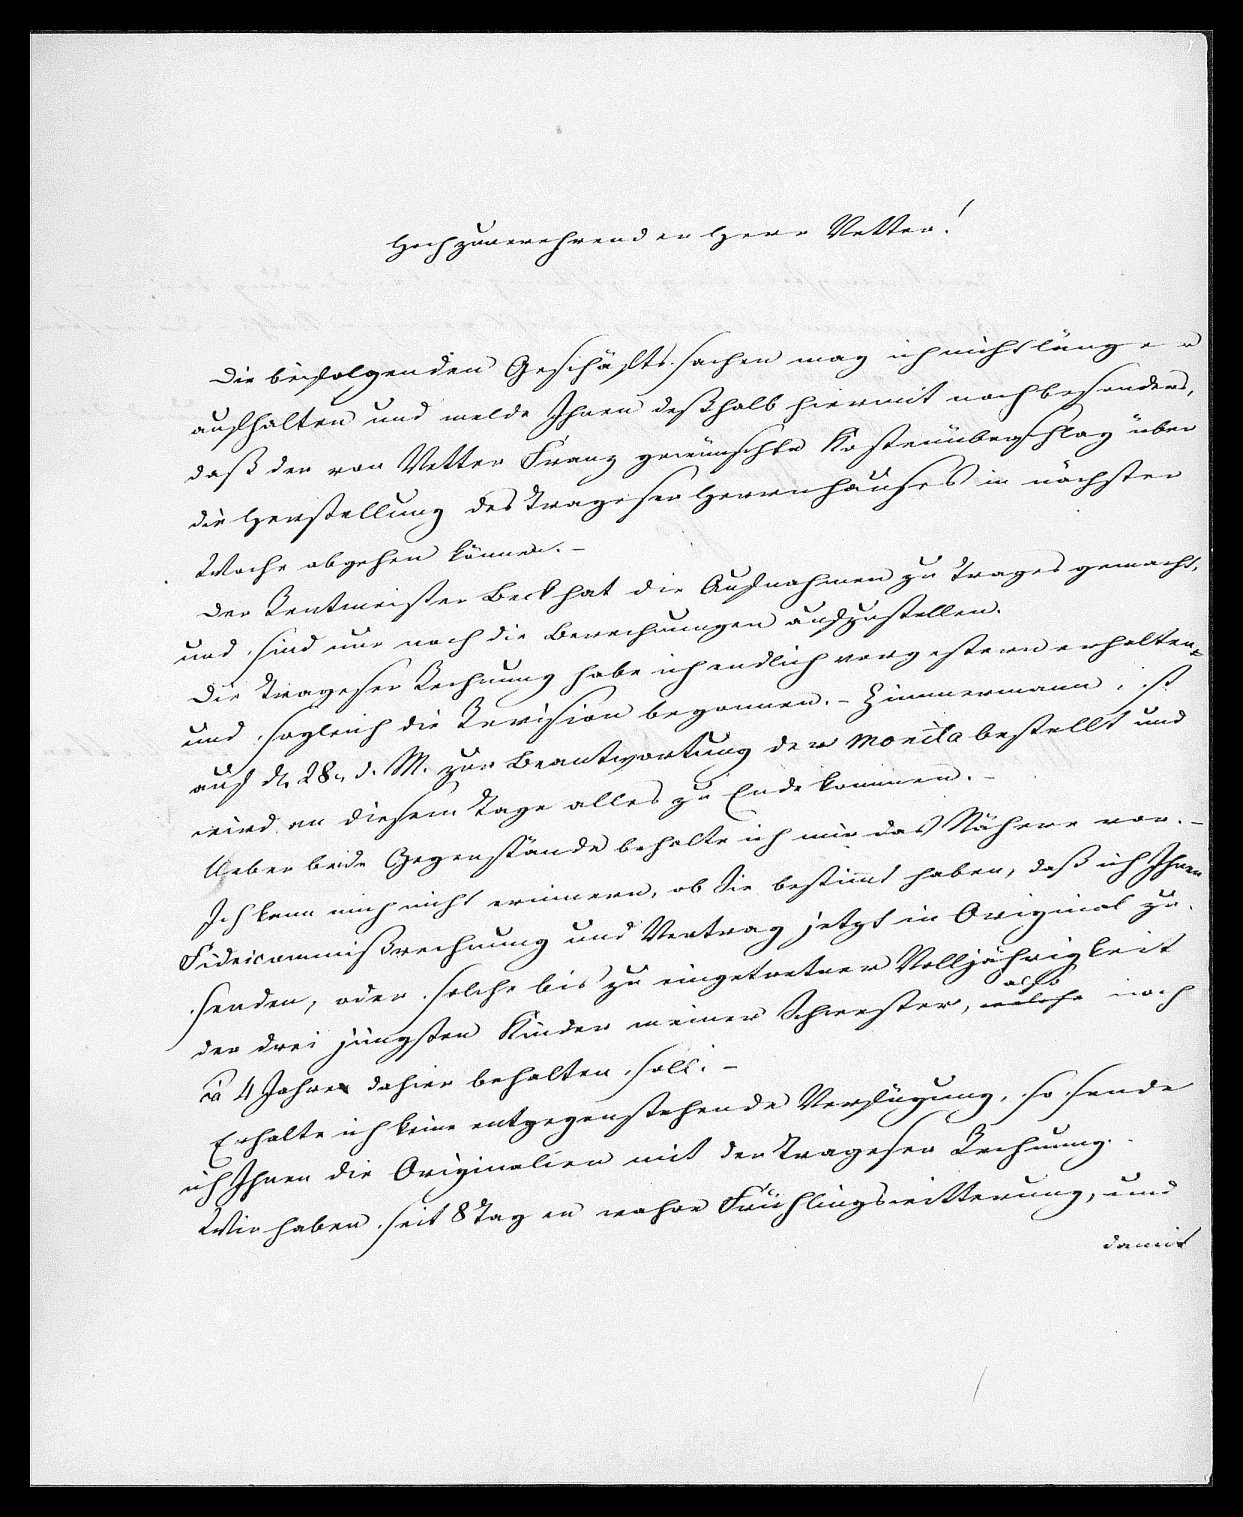 Hochzuverehrender Herr Vetter!
Die beifolgenden Geschäfts sachen mag ich nicht länger
aufhalten und melde Ihnen deßhalb hiermit noch besonders,
daß der von Vetter Franz gewünschte Kostenüberschlag über
die Herstellung des Trageser Herrnhauses in nächster
Woche abgehen können. –
Der Rentmeister Beck hat die Aufnahmen zu Trages gemacht,
und sind nur noch die Berechnungen aufzustellen.
Die Trageser Rechnung habe ich endlich vorgestern erhalten
und sogleich die Revision begonnen. – Zimmermann ist
auf d. 28. d. M. zur Beantwortung der Monita bestellt und
wird an diesem Tage alles zu Ende kommen. –
Ueber beide Gegenstände behalte ich mir das Nähere vor. –
Ich kann mich nicht erinnern, ob Sie bestimmt haben, daß ich Ihnen
Fideicommißrechnung und Vertrag jetzt in Original zu-
senden, oder solche bis zu eingetretner Volljährigkeit
der drei jüngsten Kinder meiner Schwester, welche also noch
à 4 Jahre dahier behalten soll. –
Erhalte ich keine entgegenstehende Verfügung, so sende
ich Ihnen die Originalien mit der Trageser Rechnung.
Wir haben seit 8 Tagen wahre Frühlingswitterung, und
damit